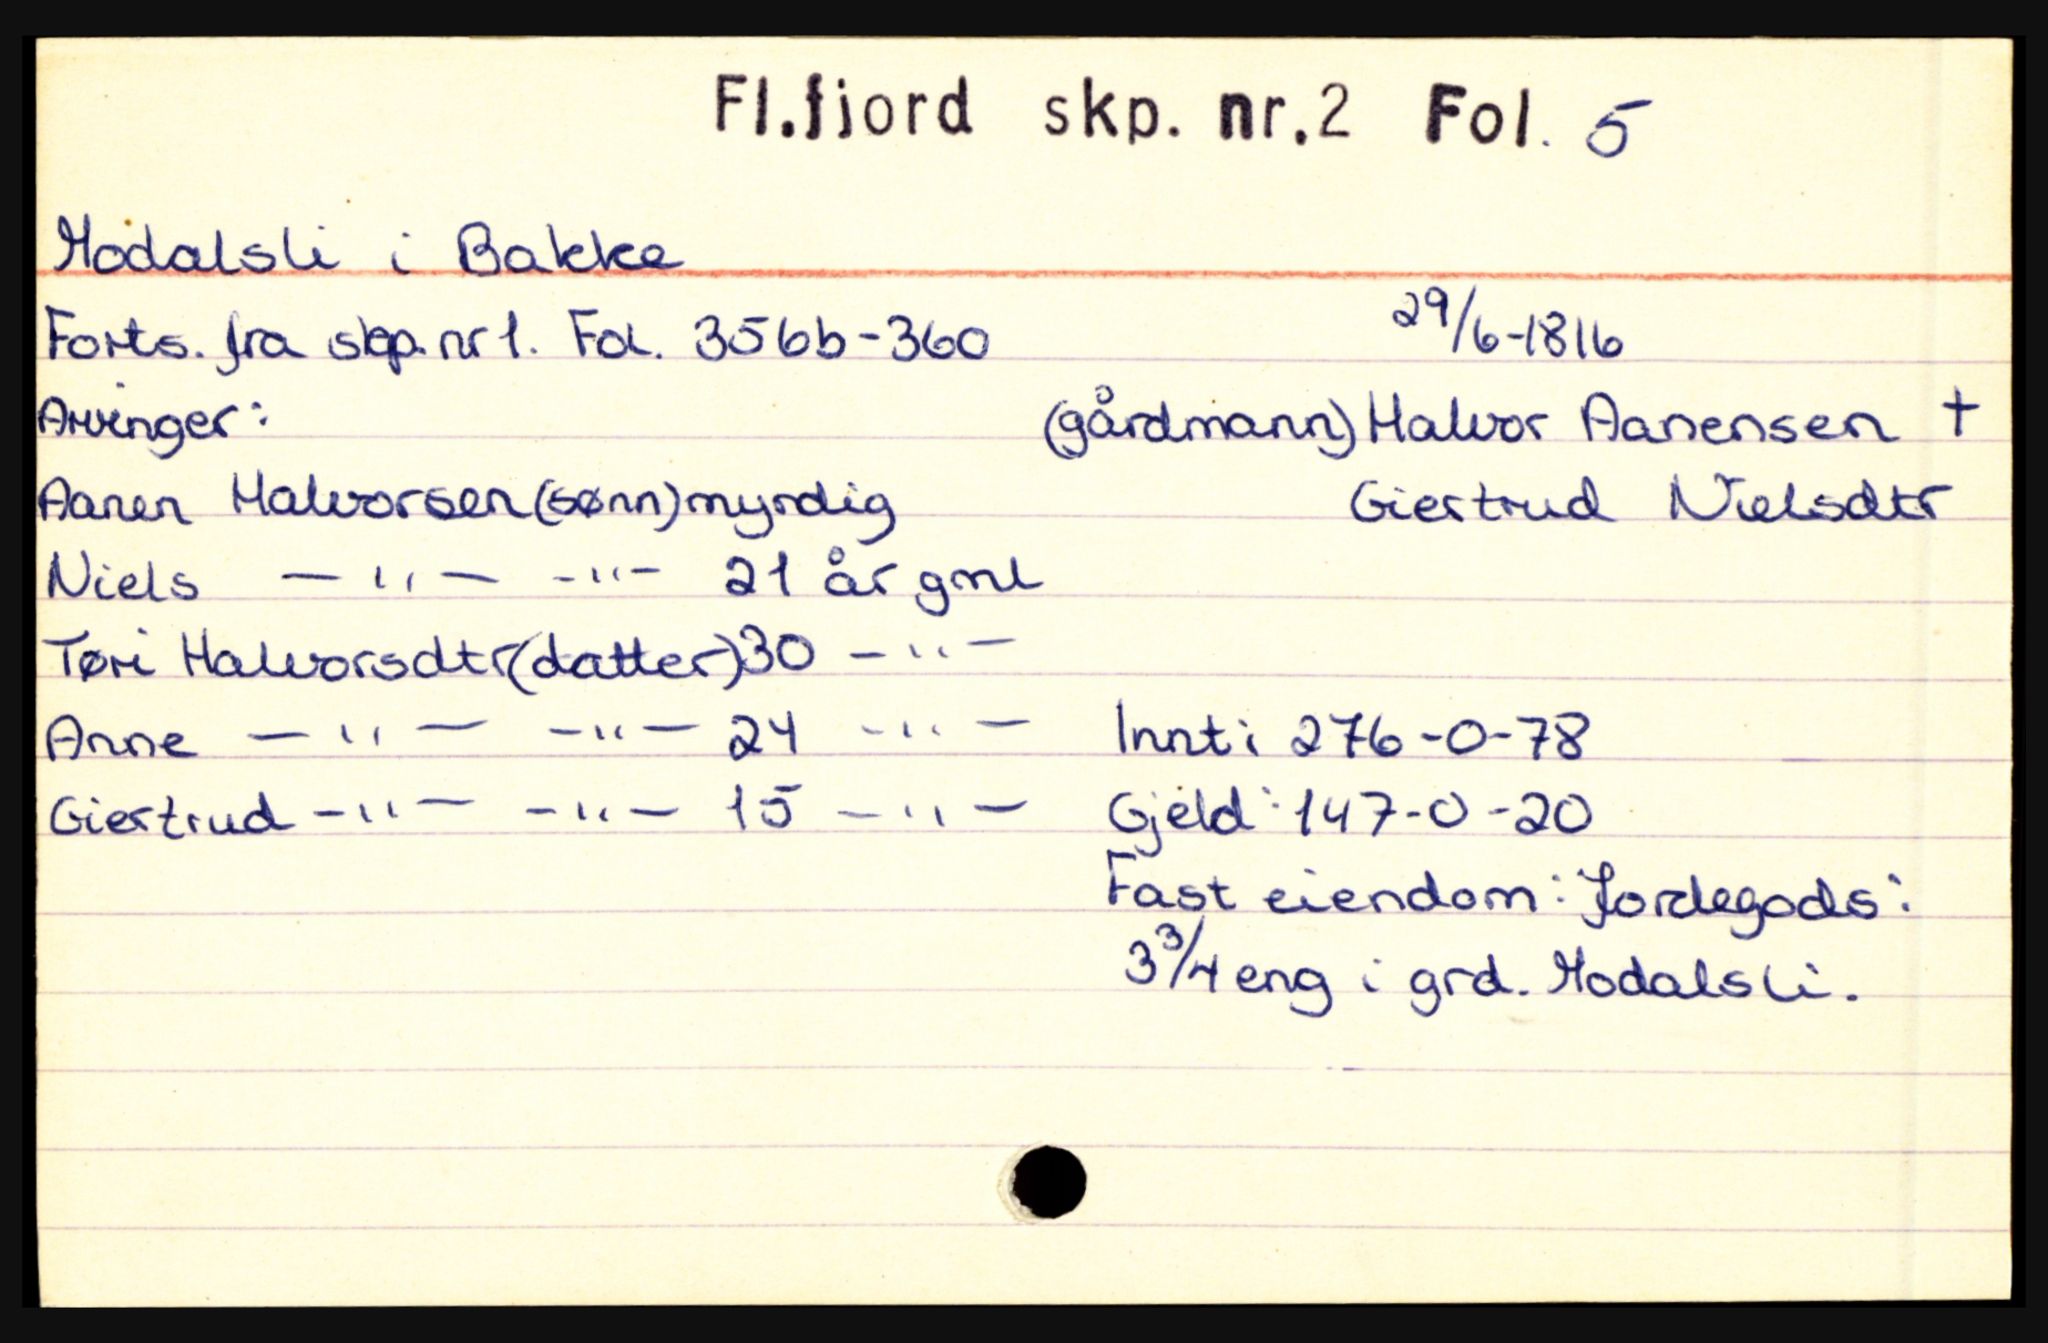 Fl.fjord skp. nr.2 Fol. 5
Modalsli i Bakke
Forts. fra skp. nr 1. Fol. 356b-360 29/6-1816
Arvinger: (gårdmann) Halvor Aanensen †
Aanen Halvorsen (sønn) myndig Giertrud Nielsdtr
Niels — " — - " - 21 år gml
Tøri Halvorsdtr (datter) 30 - " -
Anne — " — - " - 24 - " - Innt: 276-0-78
Giertrud - " - - " - 15 - " - Gjeld: 147-0-20
Fast eiendom: Jordegods:
3 3/4 eng i grd. Modalsli.